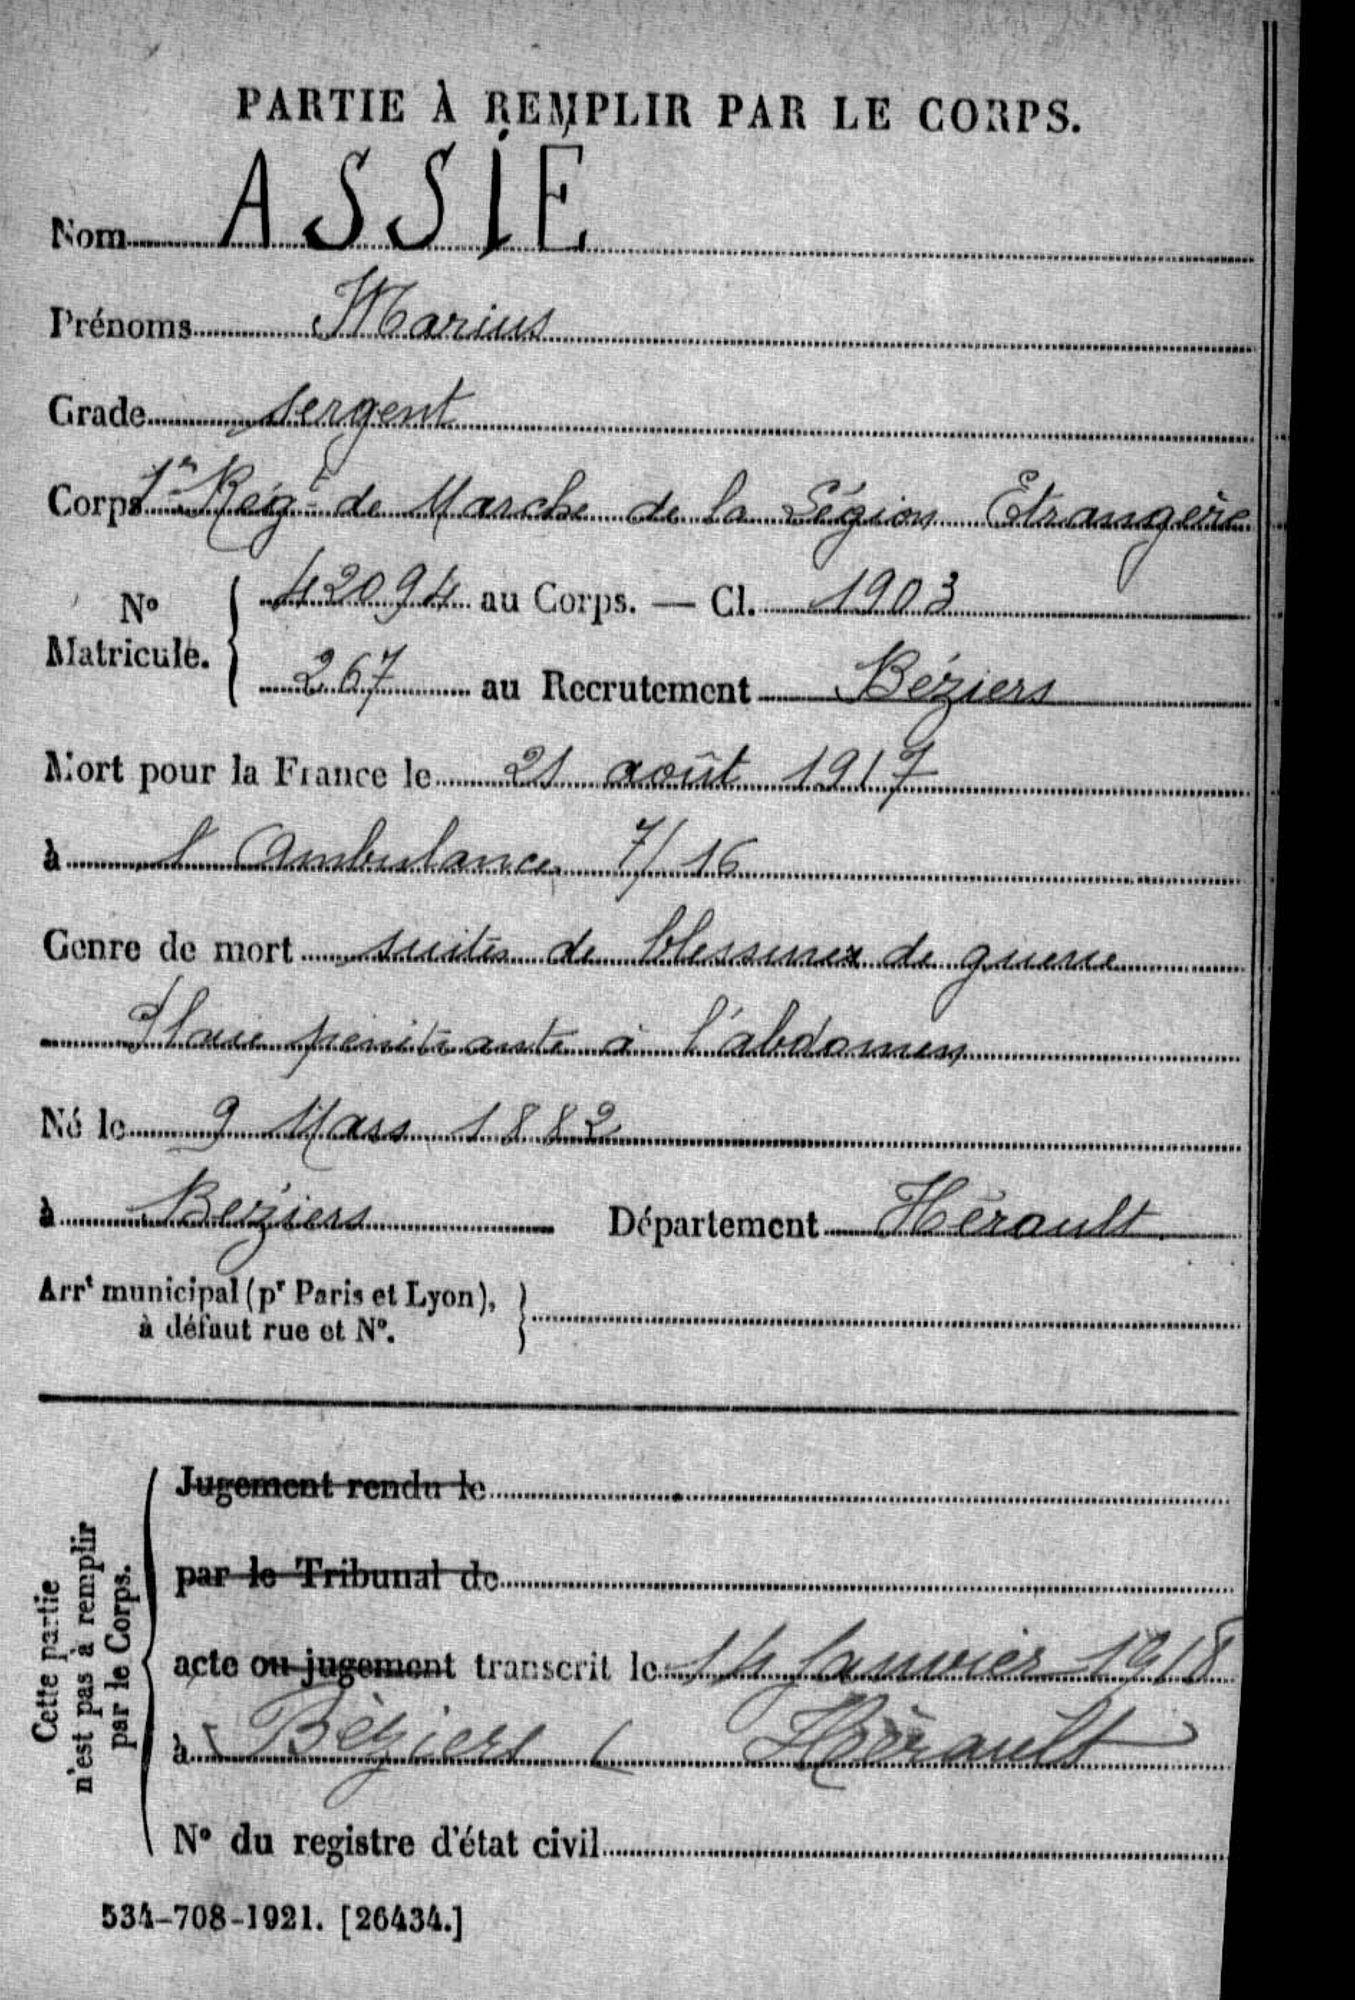 PARTIE À REMPLIR PAR LE CORPS.
Nom ASSIE
Prénoms Marius
Grade sergent
Corps 1er Régt de Marche de la Légion Etrangère
No Matricule. { 42094 au Corps. — Cl. 1903
267 au Recrutement Béziers
Mort pour la France le 21 août 1917
à l'Ambulance 7/16
Genre de mort suites de blessures de guerre
Plaie pénétrante à l'abdomen
Né le 9 Mars 1882
à Beziers Département Hérault
Arrt municipal (pr Paris et Lyon),
à défaut rue et No.
Cette partie
n'est pas à remplir
par le Corps.
Jugement rendu le
par le Tribunal de
acte ou jugement transcrit le 14 Janvier 1918
à Béziers ( Hérault
No du registre d'état civil
534-708-1921. [26434.]